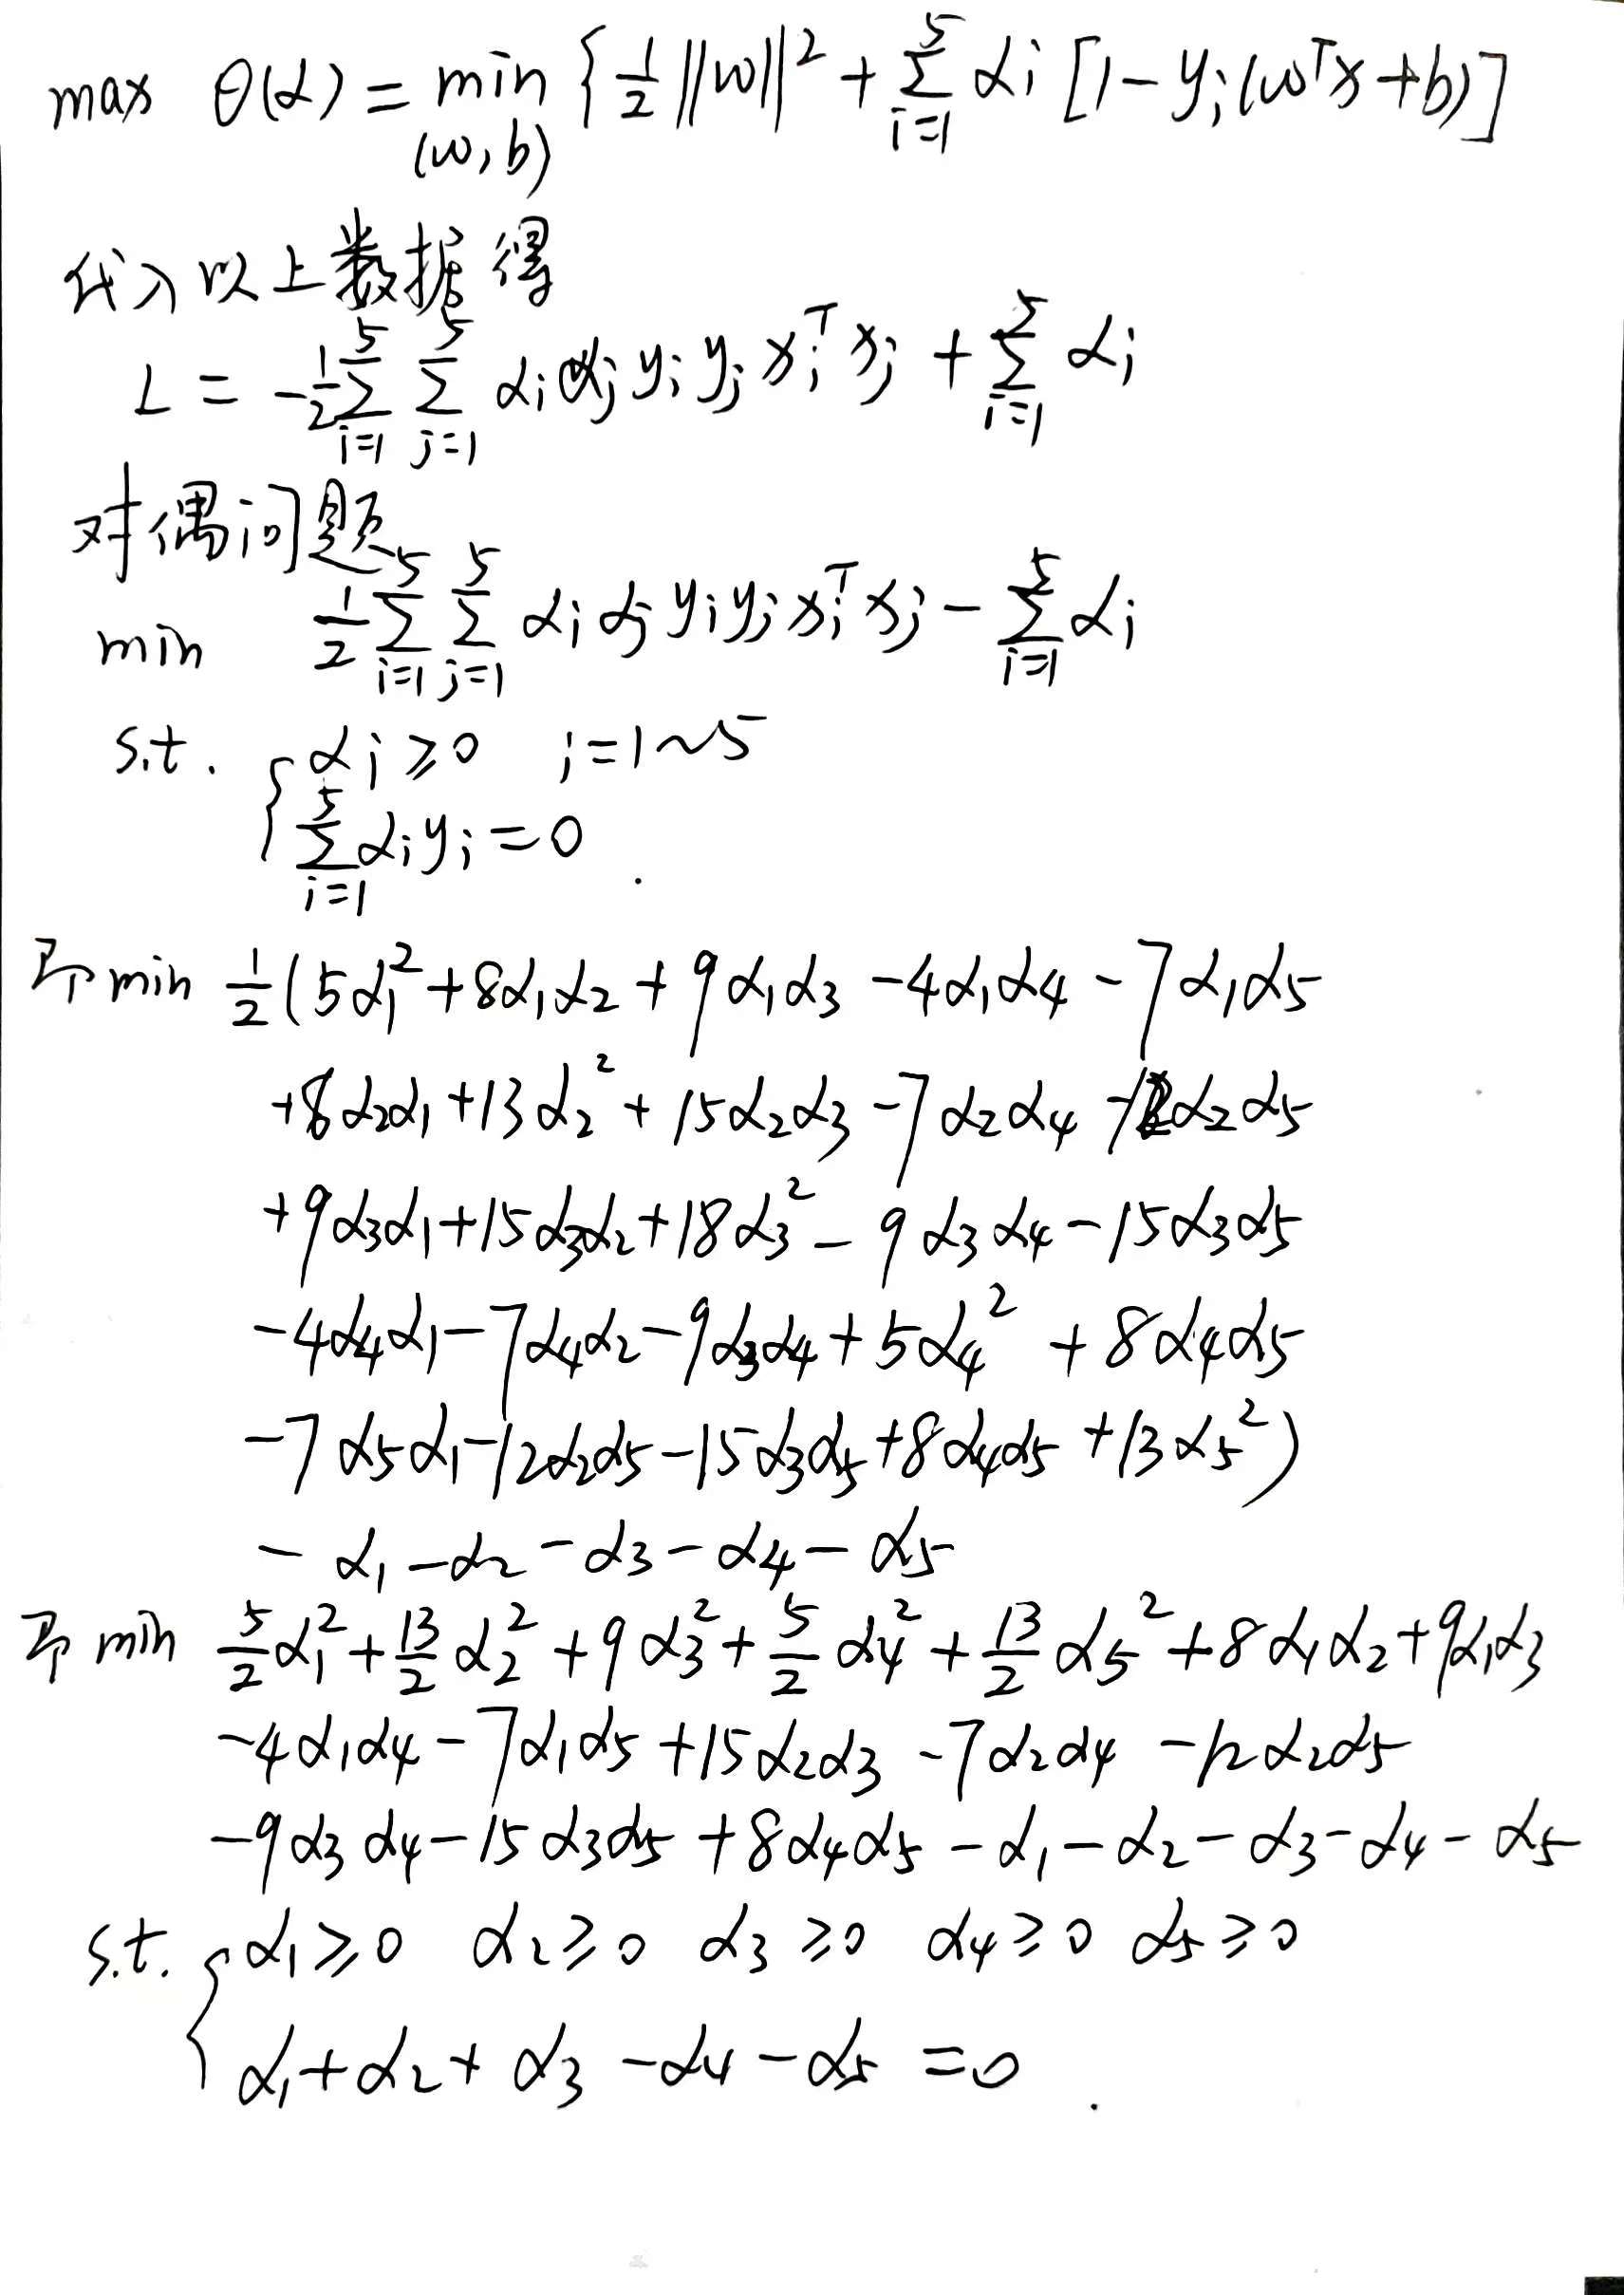 max θ(α) = min {½||w||² + Σ αi [1 - yi(wᵀx + b)]
(w, b) i=1 5
代入以上数据得
L = -½ Σ_{i=1}^{5} Σ_{j=1}^{5} αi αj yi yj xiᵀ xj + Σ_{i=1}^{5} αi
对偶问题
min ½ Σ_{i=1}^{5} Σ_{j=1}^{5} αi αj yi yj xiᵀ xj - Σ_{i=1}^{5} αi
s.t. { αi ≥ 0 i = 1~5
Σ_{i=1}^{5} αi yi = 0 .
即 min ½(5α₁² + 8α₁α₂ + 9α₁α₃ - 4α₁α₄ - 7α₁α₅
+8α₂α₁ + 13α₂² + 15α₂α₃ - 7α₂α₄ - 12α₂α₅
+9α₃α₁ + 15α₃α₂ + 18α₃² - 9α₃α₄ - 15α₃α₅
-4α₄α₁ - 7α₄α₂ - 9α₃α₄ + 5α₄² + 8α₄α₅
-7α₅α₁ - 12α₂α₅ - 15α₃α₅ + 8α₄α₅ + 13α₅²)
- α₁ - α₂ - α₃ - α₄ - α₅
即 min 5/2 α₁² + 13/2 α₂² + 9α₃² + 5/2 α₄² + 13/2 α₅² + 8α₁α₂ + 9α₁α₃
-4α₁α₄ - 7α₁α₅ + 15α₂α₃ - 7α₂α₄ - 12α₂α₅
-9α₃α₄ - 15α₃α₅ + 8α₄α₅ - α₁ - α₂ - α₃ - α₄ - α₅
s.t. { α₁ ≥ 0 α₂ ≥ 0 α₃ ≥ 0 α₄ ≥ 0 α₅ ≥ 0
α₁ + α₂ + α₃ - α₄ - α₅ = 0 .